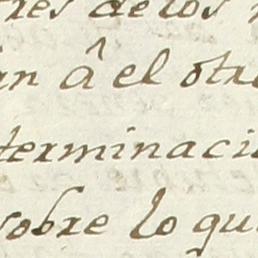 tres de los
an â el otro
terminacio
sobre lo qu